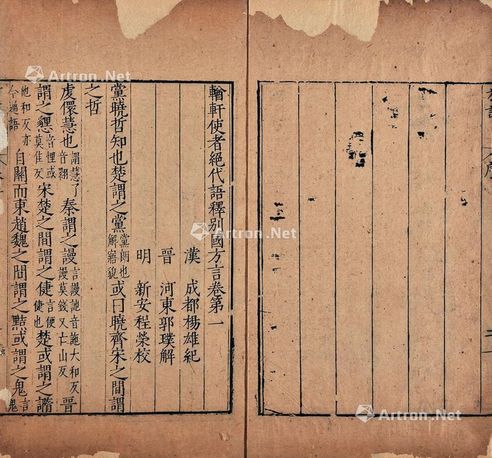 輶軒使者絕代語釋別國方言卷第一
漢 成都楊雄紀
晉 河東郭璞解
明 新安程榮校
黨曉哲知也楚謂之黨黨朗也解寤貌或曰曉齊宋之間謂
之哲
虔儇慧也謂慧了音翾秦謂之謾言謾詑音大和反謾莫錢又亡山反晉
謂之音悝或莫佳反宋楚之間謂之倢言便倢也楚或謂之
他和反亦今通語自關而東趙魏之間謂之黠或謂之鬼言鬼
Artron.Net
Artron.Net
Artron.Net
Artron.Net
Artron.Net